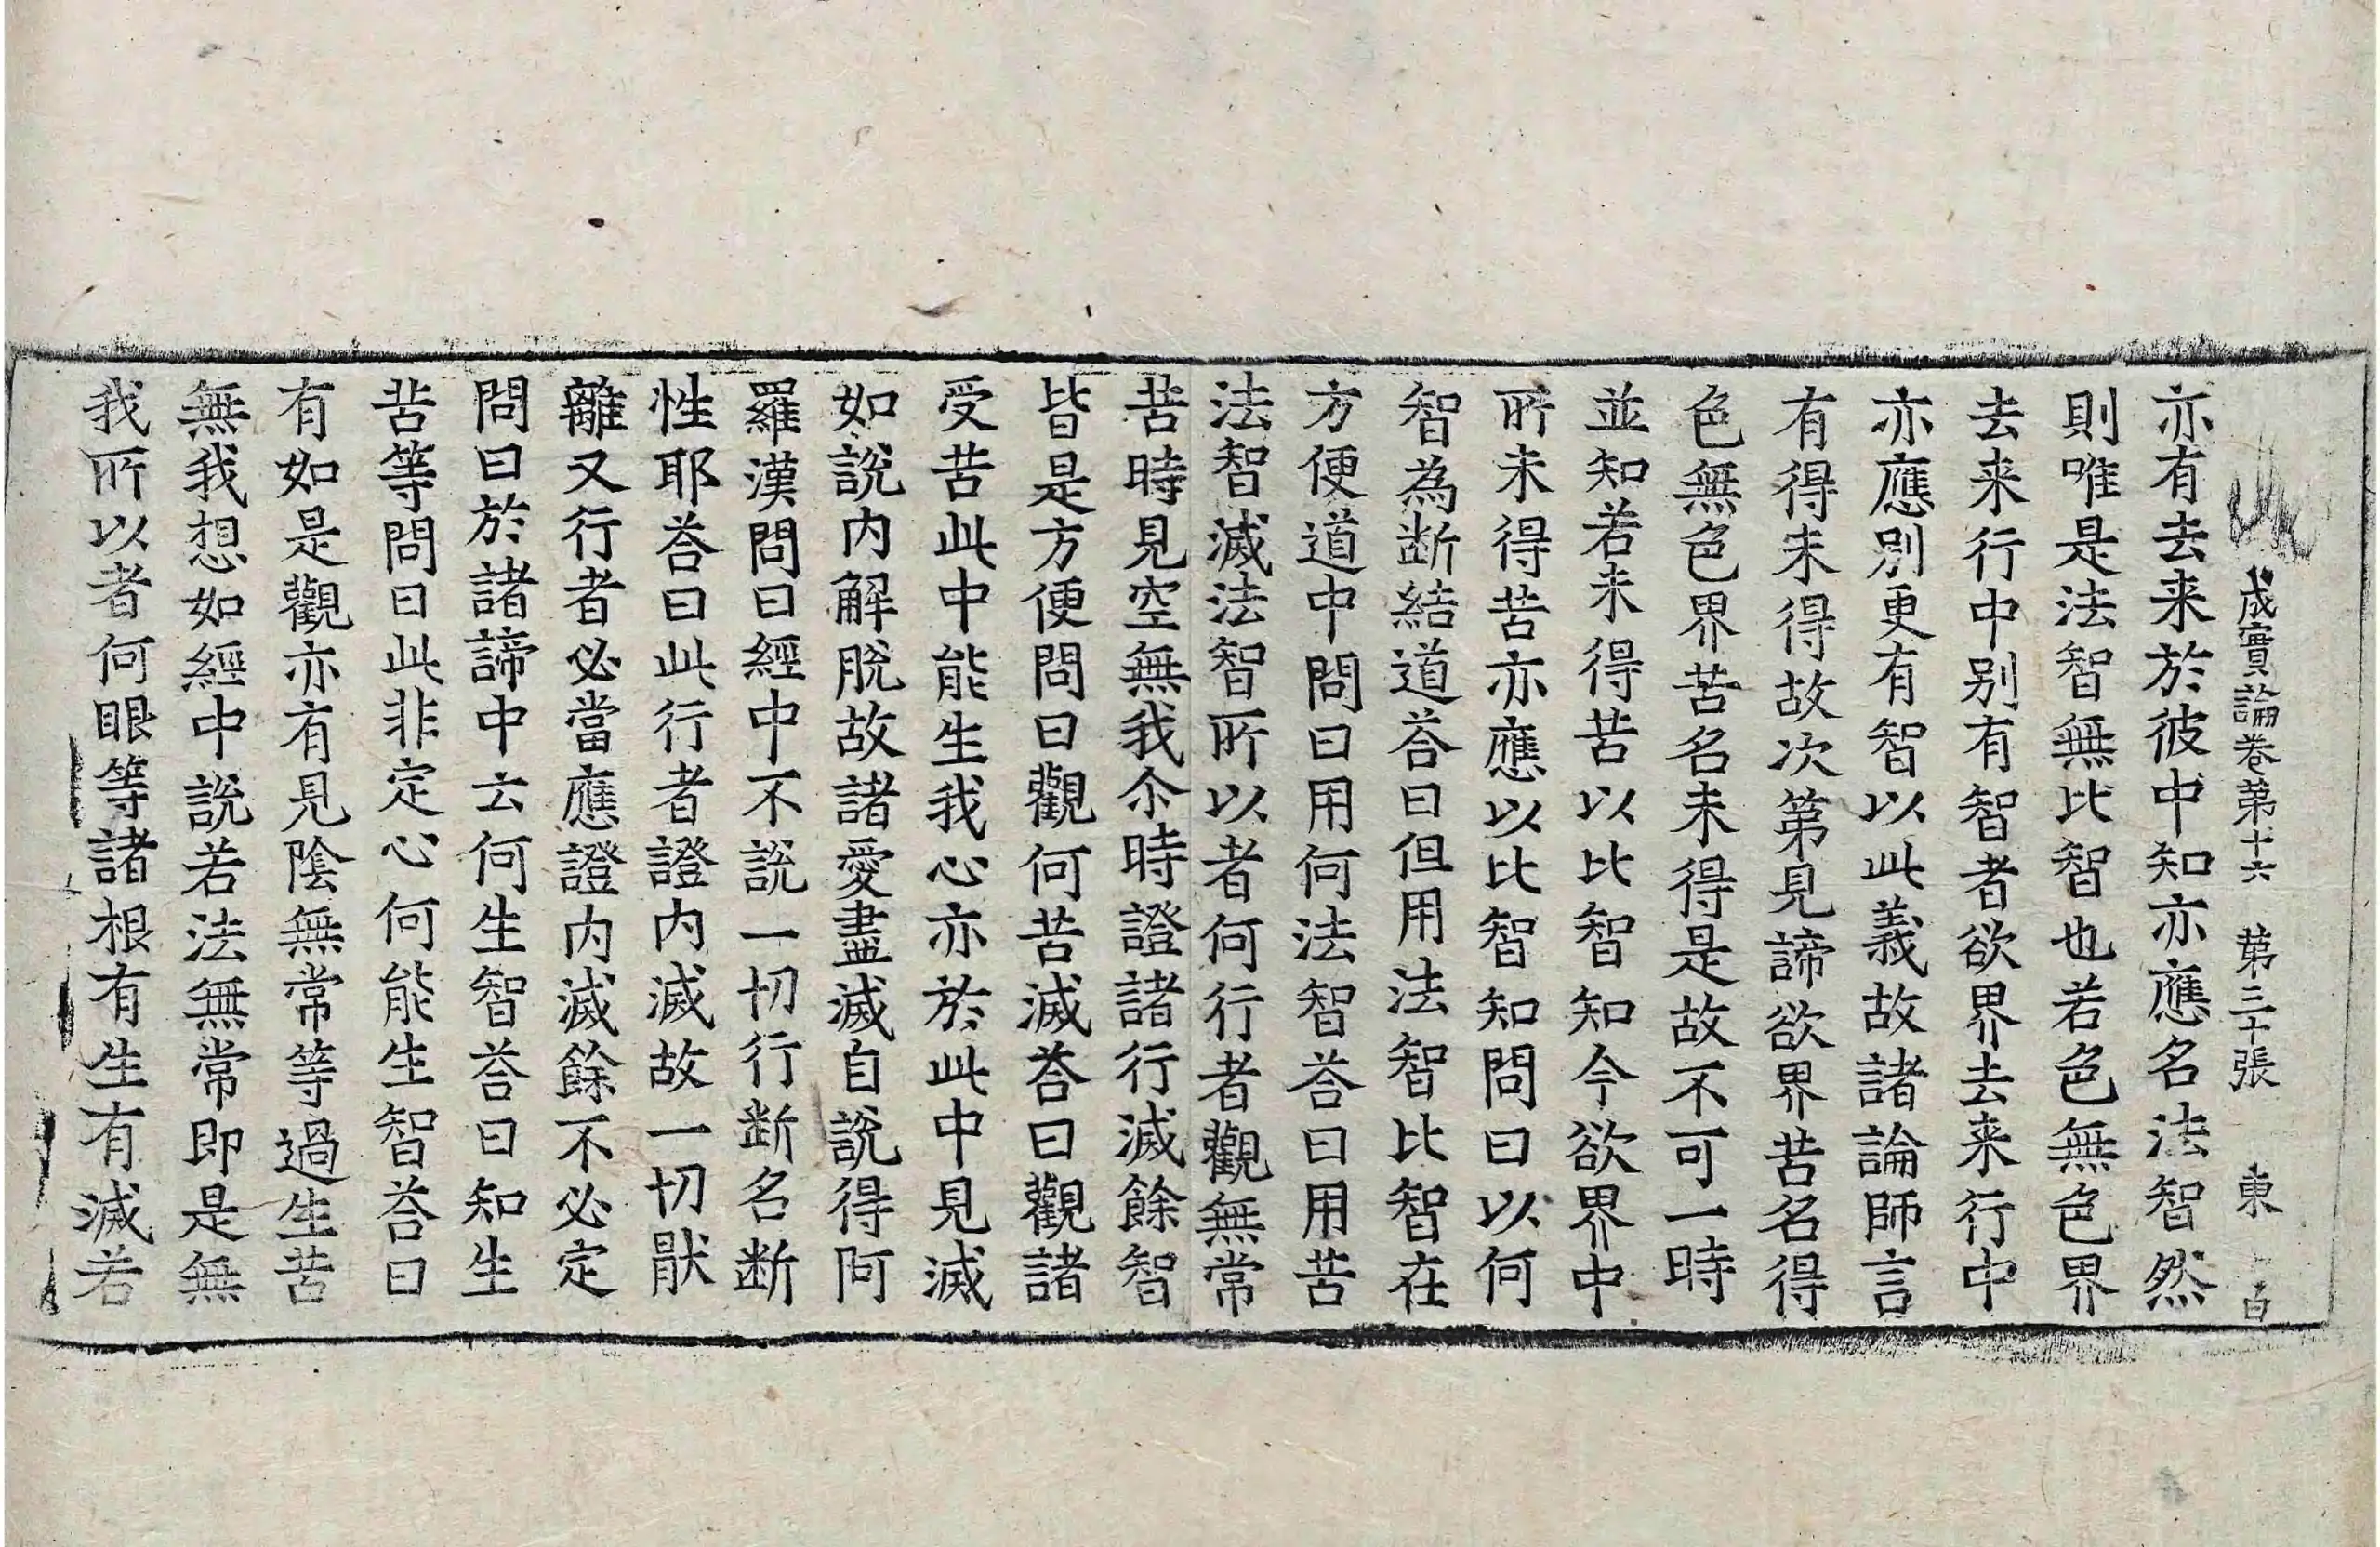 成實論卷第十六　第三十張　東　白
亦有去来於彼中知亦應名法智然
則唯是法智無比智也若色無色界
去来行中别有智者欲界去来行中
亦應别更有智以此義故諸論師言
有得未得故次第見諦欲界苦名得
色無色界苦名未得是故不可一時
並知若未得苦以比智知今欲界中
所未得苦亦應以比智知問曰以何
智為断結道荅曰但用法智比智在
方便道中問曰用何法智荅曰用苦
法智滅法智所以者何行者觀無常
苦時見空無我尒時證諸行滅餘智
皆是方便問曰觀何苦滅荅曰觀諸
受苦此中能生我心亦於此中見滅
如說内解脫故諸愛盡滅自說得阿
羅漢問曰經中不說一切行断名断
性耶荅曰此行者證内滅故一切猒
離又行者必當應證内滅餘不必定
問曰於諸諦中云何生智荅曰知生
苦等問曰此非定心何能生智荅曰
有如是觀亦有見陰無常等過生苦
無我想如經中說若法無常即是無
我所以者何眼等諸根有生有滅若